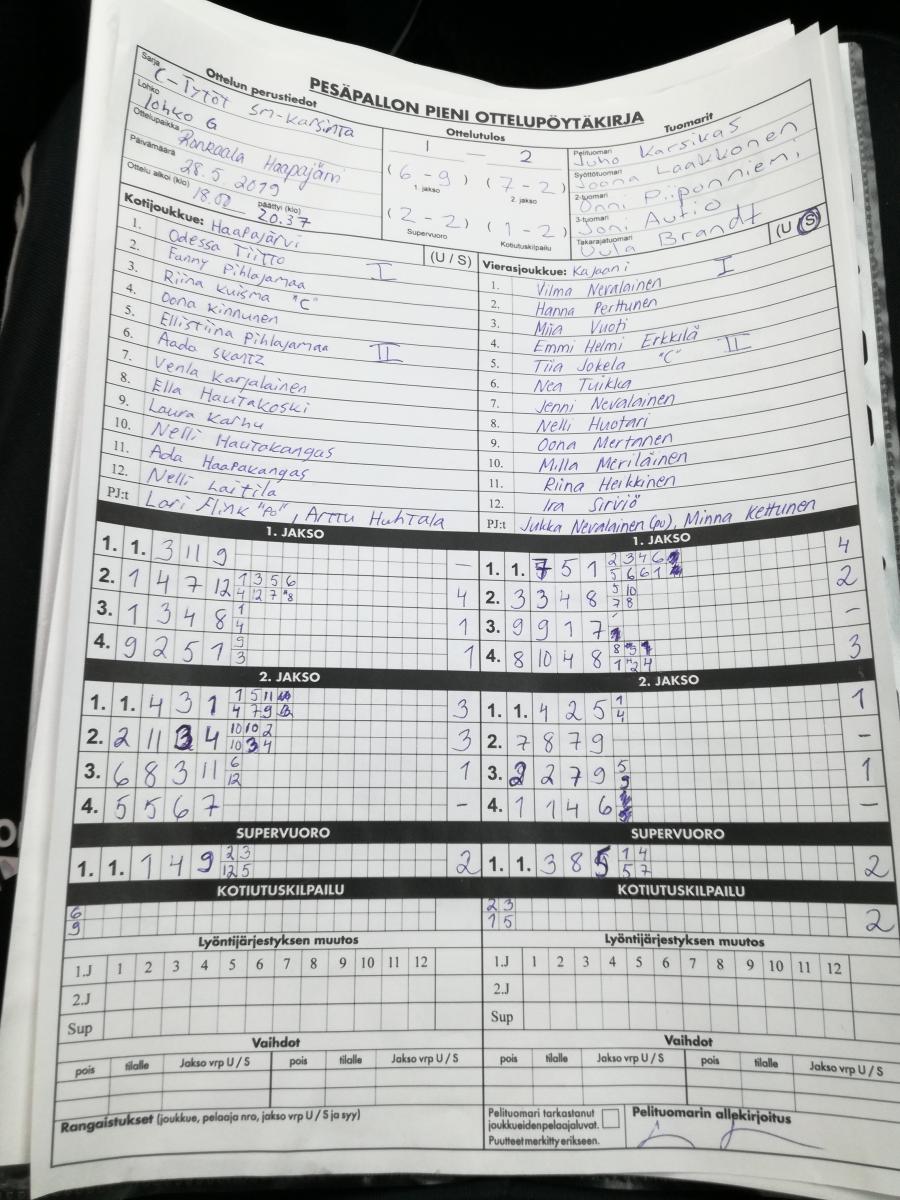 PESÄPALLON PIENI OTTELUPÖYTÄKIRJA
Ottelun perustiedot
Sarja C-Tytöt SM-karsinta
Lohko lohko G
Ottelupaikka Ronkaala Haapajärvi
Päivämäärä 28.5 2019
Ottelu alkoi (klo) 18.00 päättyi (klo) 20.37
Ottelutulos
1 - 2
(6 - 9) (7 - 2)
1. jakso 2. jakso
(2 - 2) (1 - 2)
Supervuoro Kotiutuskilpailu
Tuomarit
Pelituomari Juho Karsikas
Syöttötuomari Joona Laakkonen
2-tuomari Onni Piipponniemi
3-tuomari Joni Autio
Takarajatuomari Uula Brandt
Kotijoukkue: Haapajärvi (U / S)
1. Odessa Tiitto
2. Fanny Pihlajamaa I
3. Riina Kuisma "C"
4. Oona Kinnunen
5. Ellistiina Pihlajamaa
6. Aada Skantz II
7. Venla Karjalainen
8. Ella Hautakoski
9. Laura Karhu
10. Nelli Hautakangas
11. Ada Haapakangas
12. Nelli Laitila
PJ:t Lari Flink "PO", Arttu Huhtala
Vierasjoukkue: Kajaani (U / S)
1. Vilma Nevalainen I
2. Hanna Perttunen
3. Miia Vuoti
4. Emmi Helmi Erkkilä
5. Tiia Jokela "C" II
6. Nea Tuikka
7. Jenni Nevalainen
8. Nelli Huotari
9. Oona Mertanen
10. Milla Meriläinen
11. Riina Heikkinen
12. Ira Sirviö
PJ:t Jukka Nevalainen (po), Minna Kettunen
1. JAKSO
1. 1. 3 11 9 -
2. 1 4 7 12 1 3 5 6 4
4 12 7 8
3. 1 3 4 8 1 1
4
4. 9 2 5 1 9 1
3
1. JAKSO
1. 1. 7 5 1 2 3 4 6 4
5 6 6 1
2. 3 3 4 8 5 10 2
7 8
3. 9 9 1 7 -
4. 8 10 4 8 8 3 3
1 2 4
2. JAKSO
1. 1. 4 3 1 1 5 11 3
4 7 9
2. 2 11 3 4 10 10 2 3
10 3 4
3. 6 8 3 11 6 1
12
4. 5 5 6 7 -
2. JAKSO
1. 1. 4 2 5 1 1
4
2. 7 8 7 9 -
3. 2 2 7 9 5 1
9
4. 1 1 4 6 -
SUPERVUORO
1. 1. 1 4 9 2 3 2
12 5
SUPERVUORO
1. 1. 3 8 5 1 4 2
5 7
KOTIUTUSKILPAILU
6
9
KOTIUTUSKILPAILU
2 3 2
1 5
Lyöntijärjestyksen muutos
1.J 1 2 3 4 5 6 7 8 9 10 11 12
2.J
Sup
Lyöntijärjestyksen muutos
1.J 1 2 3 4 5 6 7 8 9 10 11 12
2.J
Sup
Vaihdot
pois tilalle Jakso vrp U / S pois tilalle Jakso vrp U / S
Vaihdot
pois tilalle Jakso vrp U / S pois tilalle Jakso vrp U / S
Rangaistukset (joukkue, pelaaja nro, jakso vrp U / S ja syy)
Pelituomari tarkastanut
joukkueidenpelaajaluvat.
Puutteet merkitty erikseen.
Pelituomarin allekirjoitus